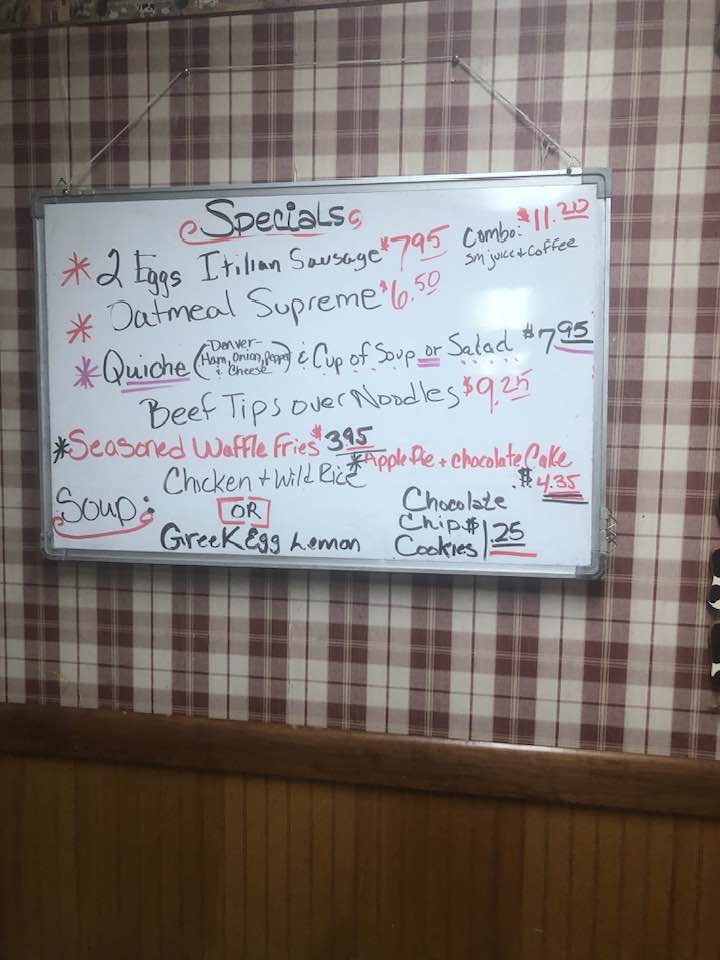 Specials
* 2 Eggs Itilian Sausage $7.95 Combo: $11.20
Sm juice + Coffee
* Oatmeal Supreme $6.50
* Quiche (Denver- Ham, Onion, Pepper & Cheese) & Cup of Soup or Salad $7.95
Beef Tips over Noodles $9.25
* Seasoned Waffle Fries $3.95
* Apple Pie + Chocolate Cake
$4.35
Soup: Chicken + Wild Rice
OR
Greek Egg Lemon
Chocolate
Chip
Cookies $1.25